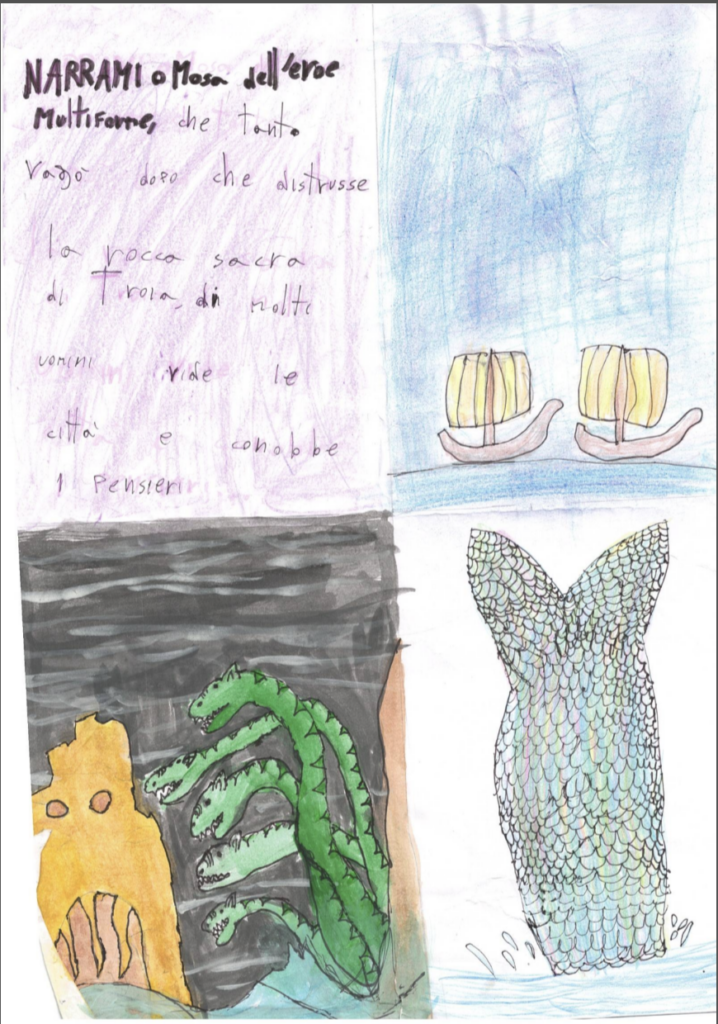 NARRAMI o Mosa dell'eroe
Multiforme, che tanto
vagò dopo che distrusse
la rocca sacra
di Troia, di molti
uomini vide le
città e conobbe
i Pensieri